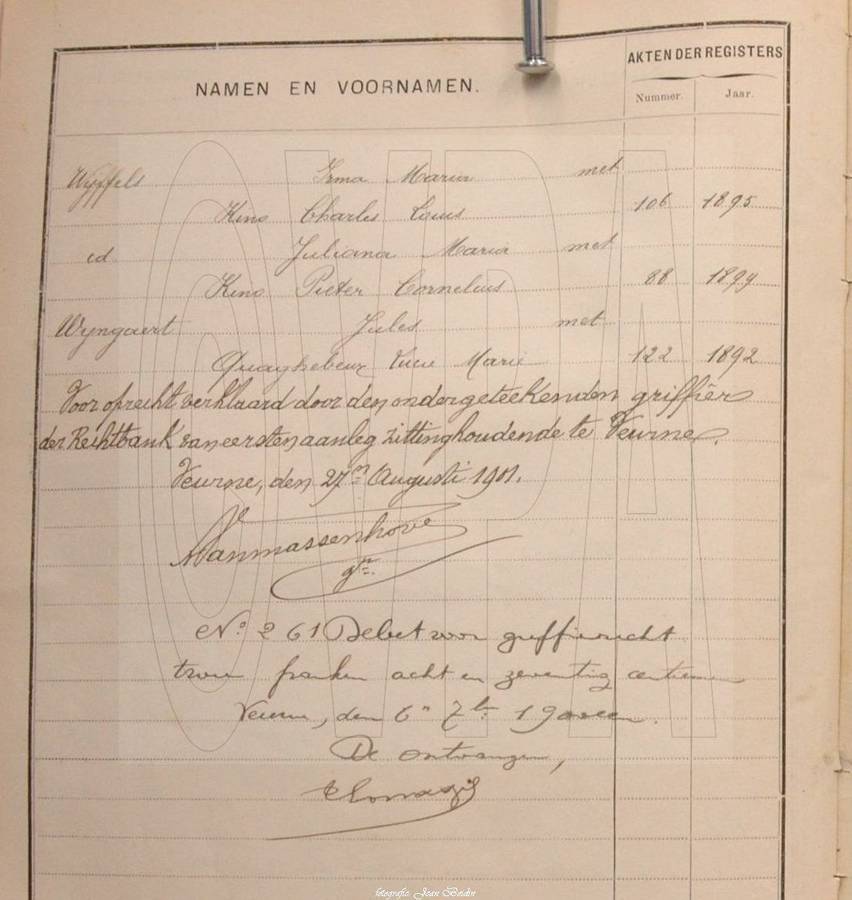 NAMEN EN VOORNAMEN.
AKTEN DER REGISTERS
Nummer. Jaar.
Wyffels Irma Maria met
Kino Charles Louis 106 1895
id Juliana Maria met
Kino Pieter Cornelius 88 1899
Wyngaert Jules met
Quaghebeur Lucie Marie 122 1892
Voor oprecht verklaard door den ondergeteekenden griffier
der Rechtbank van eersten aanleg zittinghoudende te Veurne.
Veurne, den 27n Augusti 1901.
Vanmassenhove
gr.
N° 261 Debet voor griffierecht
twee franken acht en zeventig centiemen
Veurne, den 6n 7br 19
De ontvanger,
fotografie: Jean Bedin
CVDA